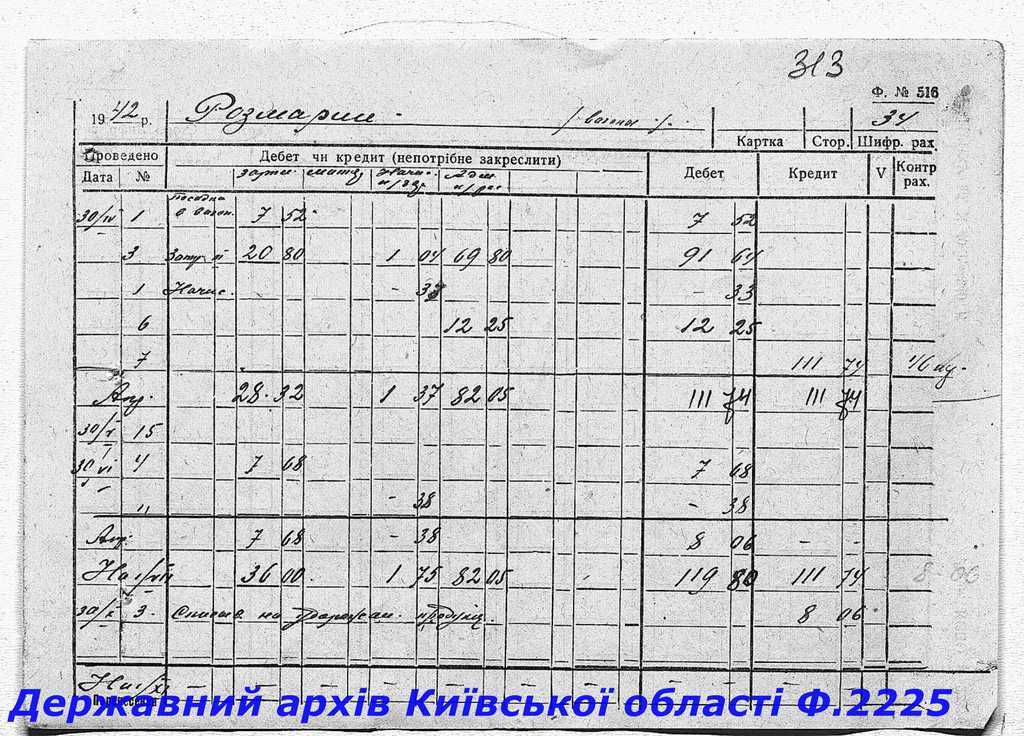 313
Ф. № 516
1942 р. Розмарин. /вазони/. 34
Картка Стор. Шифр. рах.
Проведено Дебет чи кредит (непотрібне закреслити) Дебет Кредит V Контр рах.
Дата №
30/IV 1 Посадка в вазон. 7 52 7 52
3 20 80 1 04 69 80 91 64
1 Начис. - 33 - 33
6 12 25 12 25
7 111 74
28 32 1 37 82 05 111 74 111 74
30/V 15
30/VI 4 7 68 7 68
" - 38 - 38
7 68 - 38 8 06 - -
На 1/VII 36 00 1 75 82 05 119 80 111 74 8-06
30/X 3. на продукц. 8 06
На 1/XI - - - - - - - -
Державний архів Київської області Ф.2225